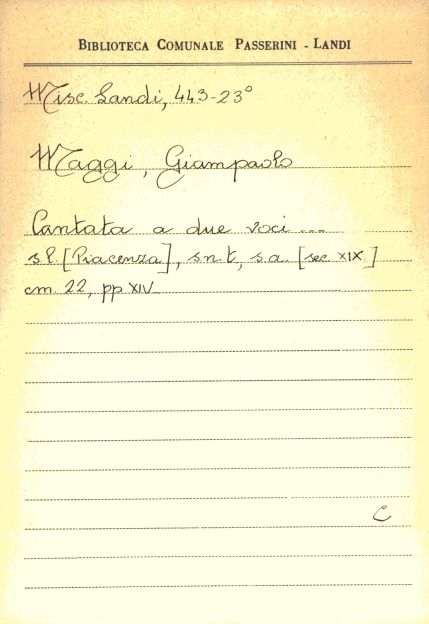 BIBLIOTECA COMUNALE PASSERINI - LANDI
Misc. Landi, 443-23°
Maggi, Giampaolo
Cantata a due voci ...
s.l. [Piacenza], s.n.t., s.a. [sec. XIX]
cm. 22, pp XIV
C